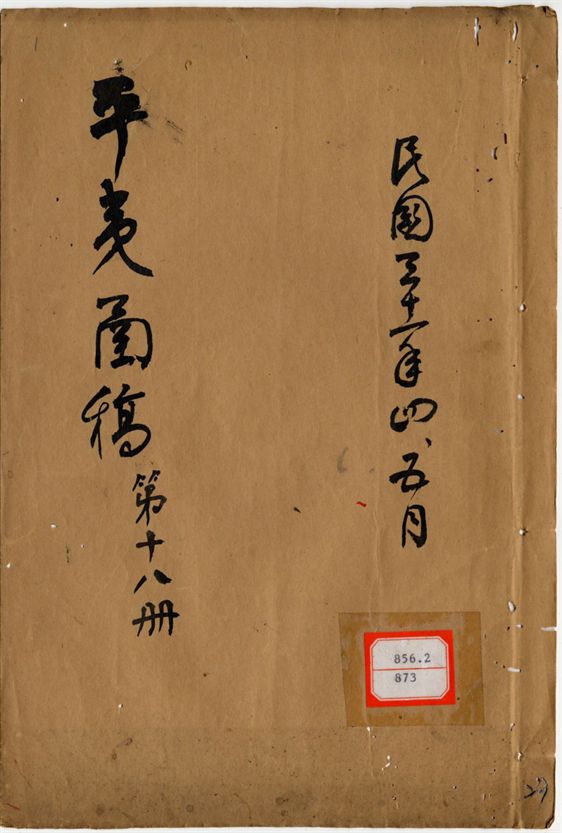 民國三十一年四、五月
平夷函稿
第十八册
856.2
873